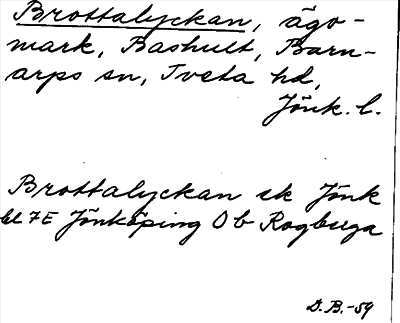 Brottalyckan, ägo-
mark, Bashult, Barn-
arps sn, Tveta hd,
Jönk. l.
Brottalyckan ek Jönk
bl 7E Jönköping O b Rogberga
D. B. -59